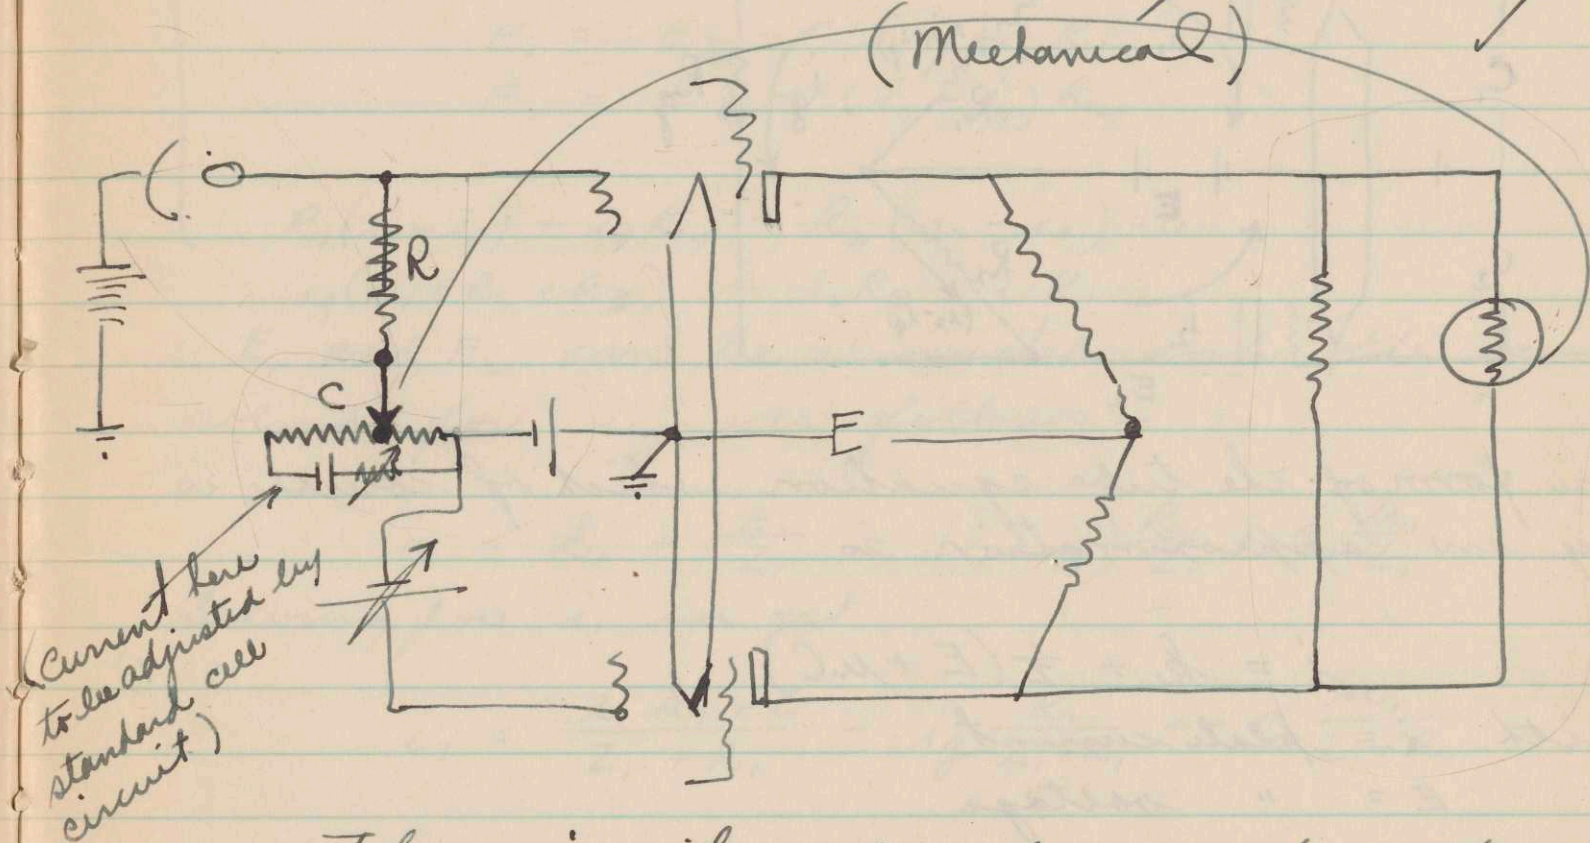 (Mechanical)
R
C
E
(Current here
to be adjusted by
standard cell
circuit)